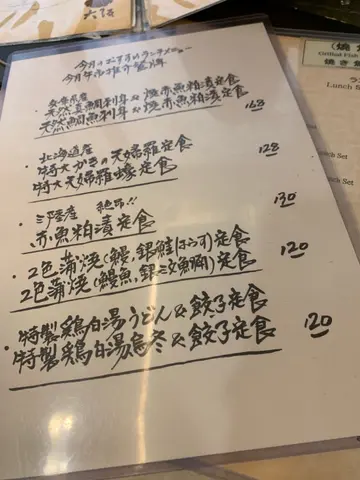 六
今月のおすすめランチメニュー
今月午市推介餐牌
・安楽県産
天然真鯛刺身 & 焼赤魚粕漬定食
天然鯛魚刺身 & 燒赤魚粕漬定食
168
・北海道産
特大かきの天婦羅定食
特大天婦羅蠔定食
128
・三陸産 絶品!!
赤魚粕漬定食
130
・2色蒲焼(鰻,銀鮭はらす)定食
2色蒲燒(鰻魚,銀三文魚腩)定食
120
・特製鶏白湯うどん&餃子定食
特製鶏白湯烏冬&餃子定食
120
(焼
Grilled Fish
焼き魚
Lunch S
Set
Lunch Set
Set